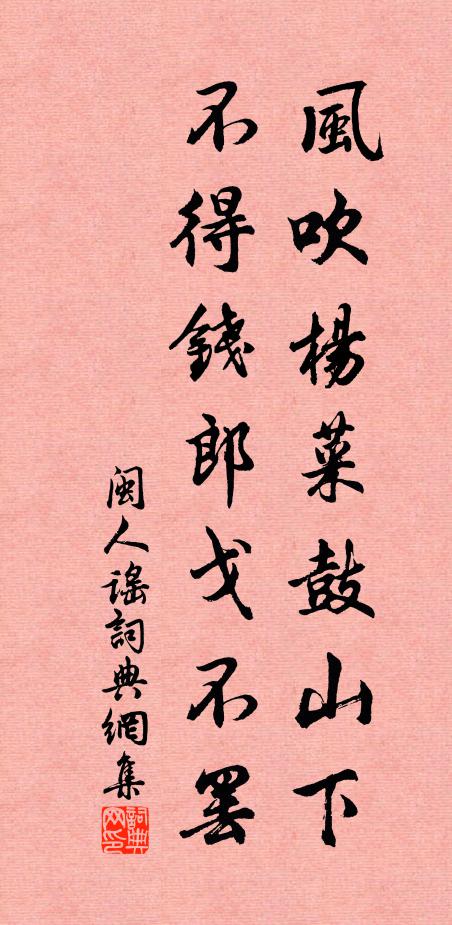 風吹楊菜鼓山下
不得錢郎戈不罢
闽人谣詞典網集
詞典网印